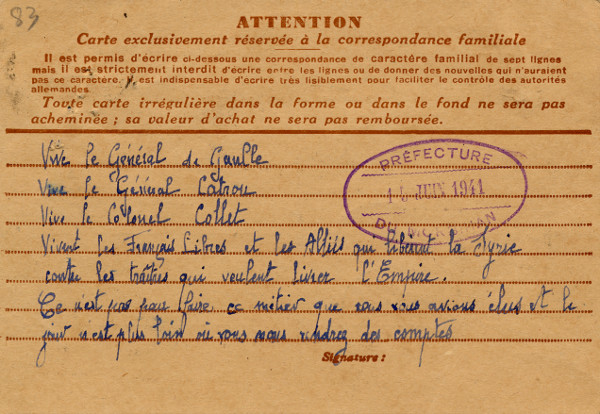 83
ATTENTION
Carte exclusivement réservée à la correspondance familiale
Il est permis d'écrire ci-dessous une correspondance de caractère familial de sept lignes
mais il est strictement interdit d'écrire entre les lignes ou de donner des nouvelles qui n'auraient
pas ce caractère. Il est indispensable d'écrire très lisiblement pour faciliter le contrôle des autorités
allemandes.
Toute carte irrégulière dans la forme ou dans le fond ne sera pas
acheminée ; sa valeur d'achat ne sera pas remboursée.
Vive le Général de Gaulle
Vive le Général Catrou
Vive le Colonel Collet
Vivent les Français Libres et les Alliés qui libèrent la Syrie
contre les traîtres qui veulent livrer l'Empire.
Ce n'est pas pour faire ce métier que nous vous avions élus et le
jour n'est plus loin où vous nous rendrez des comptes
Signature :
PRÉFECTURE
JUIN 1941